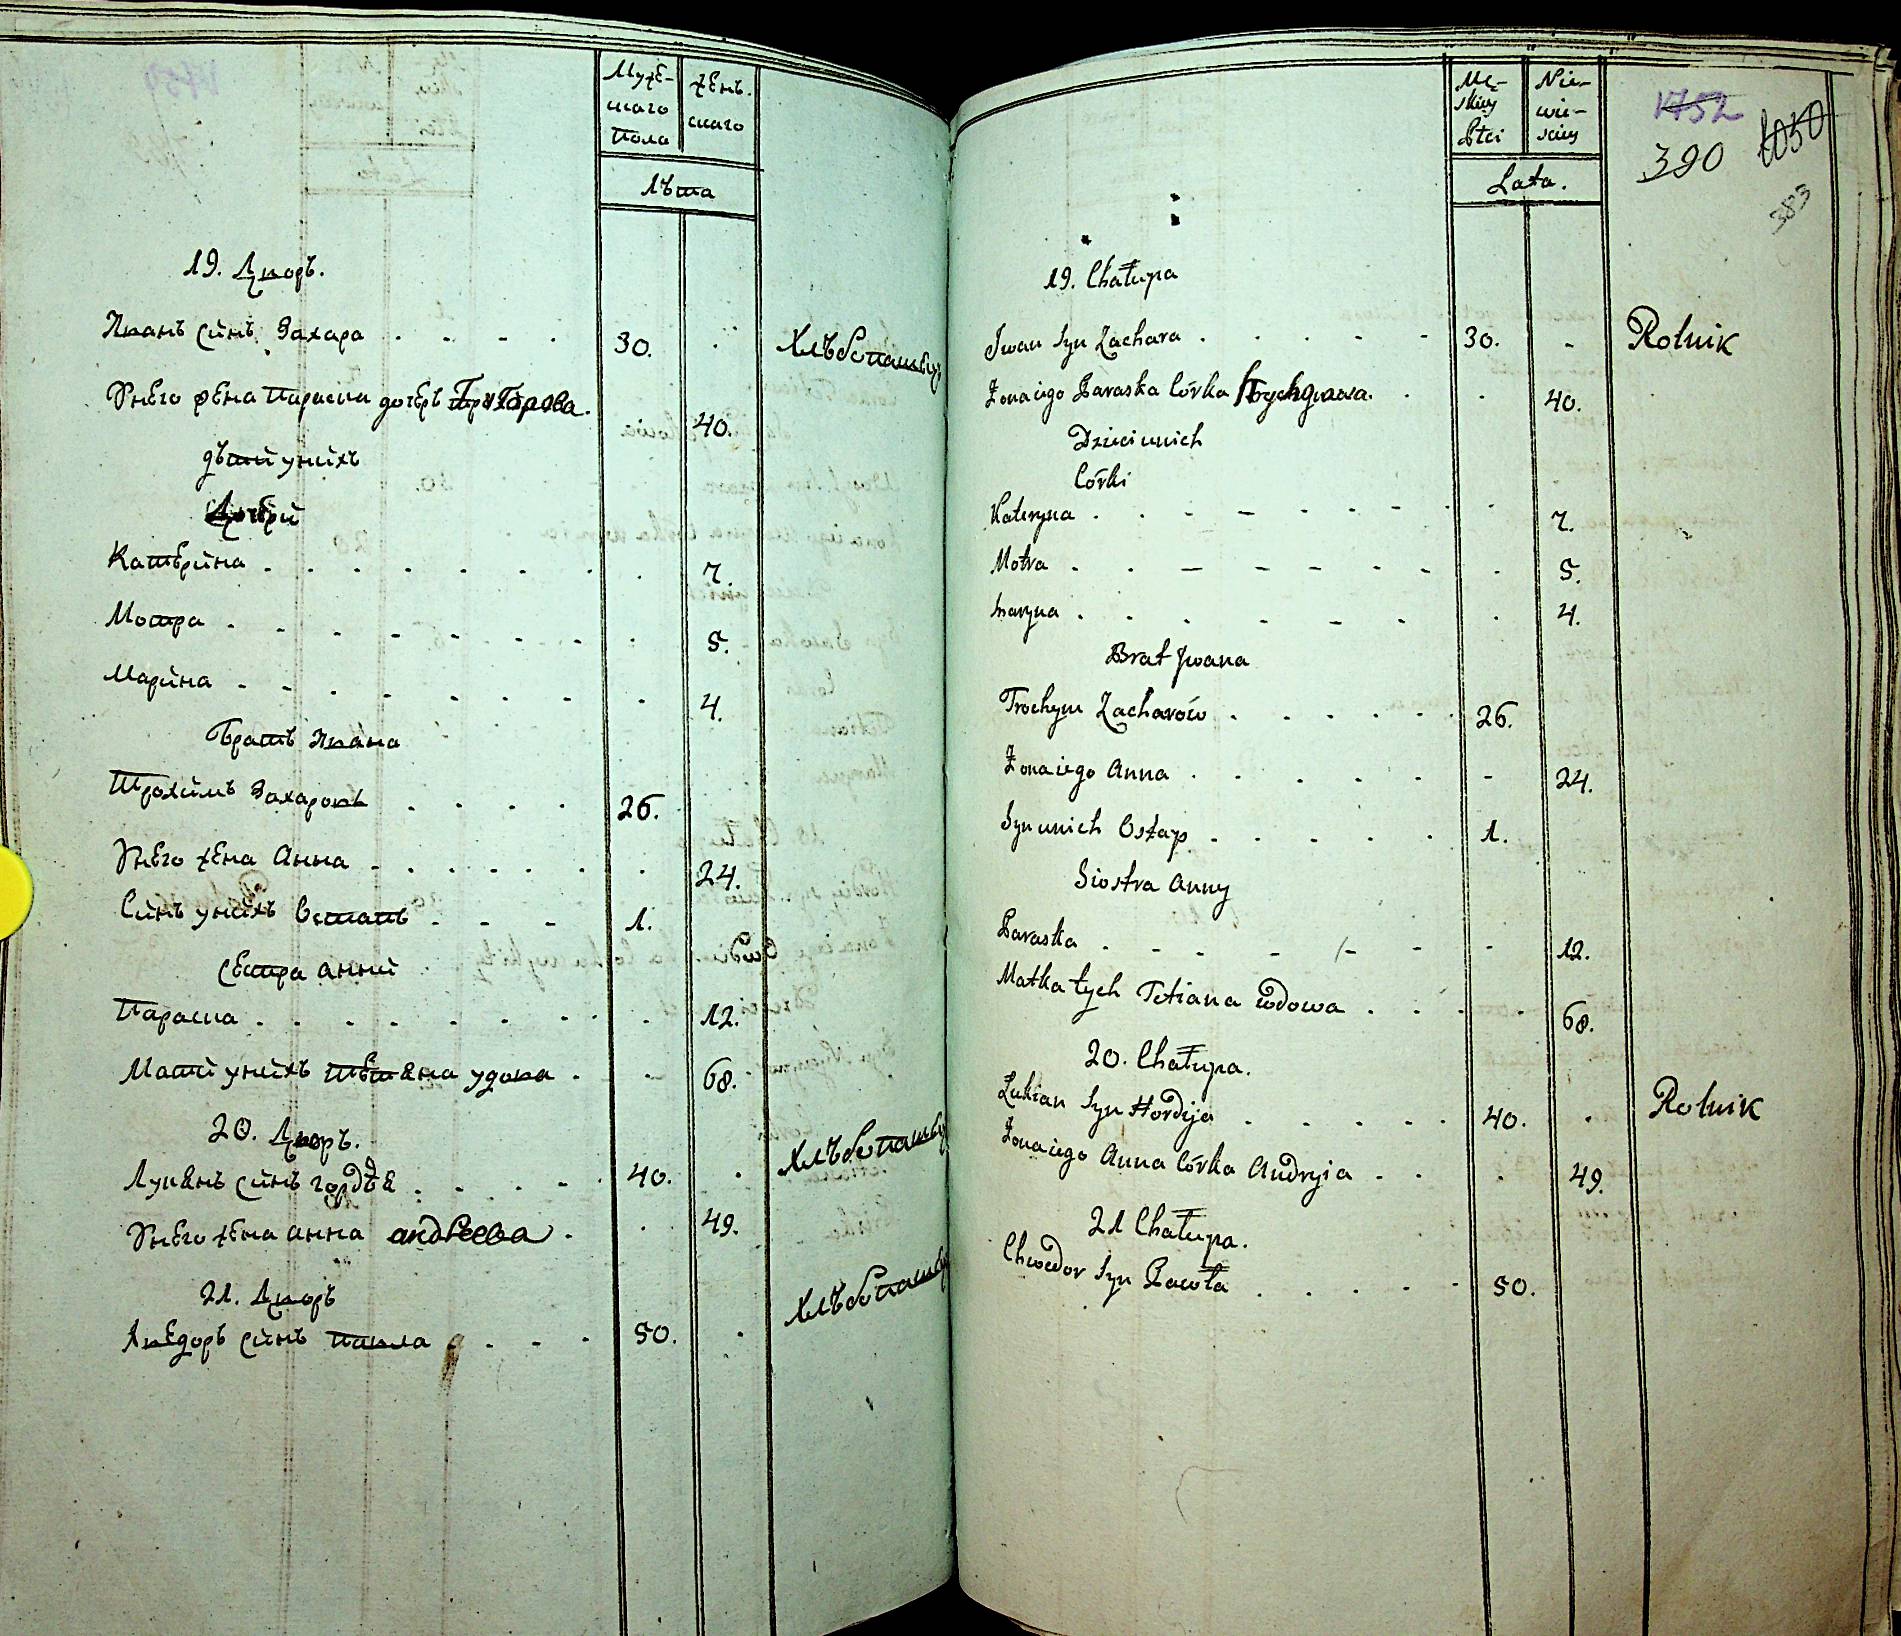 Муже-
скаго
пола
женъ.
скаго
лѣта
19. Дворъ.
Иванъ синъ Захара . . . . 30. . Хлѣбопашец
У него жена Параска дочерь Григорова. . 40.
дѣтей у нихъ
Дочери
Катерина . . . . . . . . 7.
Мотра . . . . . . . . 5.
Марина . . . . . . . . 4.
братъ Ивана
Трохимъ Захаровъ . . . . 26.
У него жена Анна . . . . . . . 24.
Синъ у нихъ Остапъ . . . 1.
Сестра Анни
Параска . . . . . . . . 12.
Мати у нихъ Тетяна удова . . 68.
20. Дворъ.
Лукянъ синъ Гордѣя . . . . . 40. . Хлѣбопашец
У него жена Анна андреева . . 49.
21. Дворъ
Хведоръ синъ Павла . . . . 50. . Хлѣбопашец
Mę-
skiey
Płci
Nie-
wie-
sciey
Lata.
1752
390
1050
383
19. Chałupa
Iwan Syn Zachara . . . . . 30. . Rolnik
Żona iego Paraska Córka Hrychorowa. . . 40.
Dzieci u nich
Córki
Kateryna . . . . . . . . 7.
Motra . . . . . . . . 5.
Maryna . . . . . . . . 4.
Brat Iwana
Trochym Zacharów . . . . . 26.
Żona iego Anna . . . . . . 24.
Syn u nich Ostap . . . . . 1.
Siostra Anny
Paraska . . . . . . . . 12.
Matka tych Tetiana wdowa . . . . 68.
20. Chałupa.
Łukian Syn Hordija . . . . . 40. . Rolnik
Żona iego Anna Córka Andryia . . . 49.
21 Chałupa.
Chwedor Syn Pawła . . . . . 50.